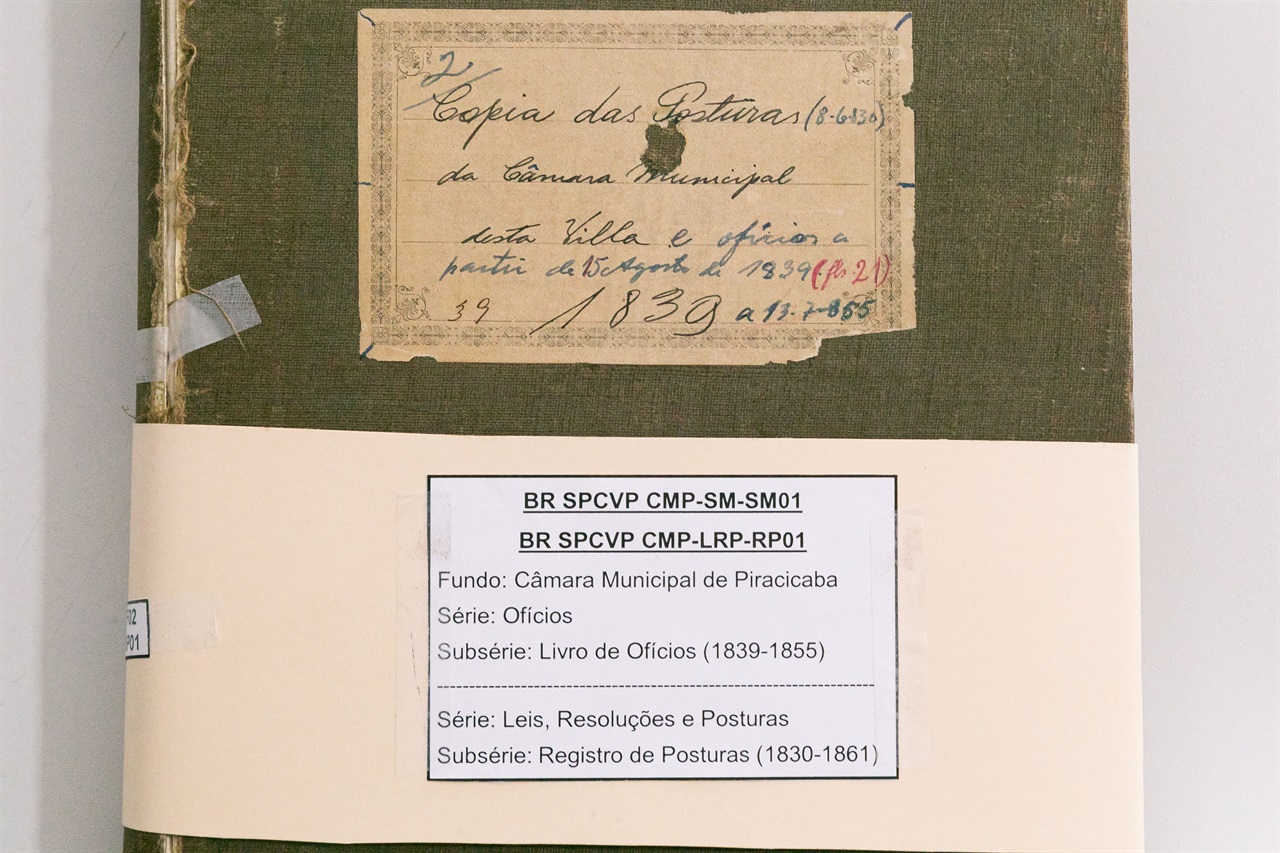 2
Copia das Posturas (8-6-830)
da Câmara Municipal
desta Villa e ofícios a
partir de 15 Agosto de 1839 (fls. 21)
39 1839 a 13-7-855
BR SPCVP CMP-SM-SM01
BR SPCVP CMP-LRP-RP01
Fundo: Câmara Municipal de Piracicaba
Série: Ofícios
Subsérie: Livro de Ofícios (1839-1855)
Série: Leis, Resoluções e Posturas
Subsérie: Registro de Posturas (1830-1861)
02
P01